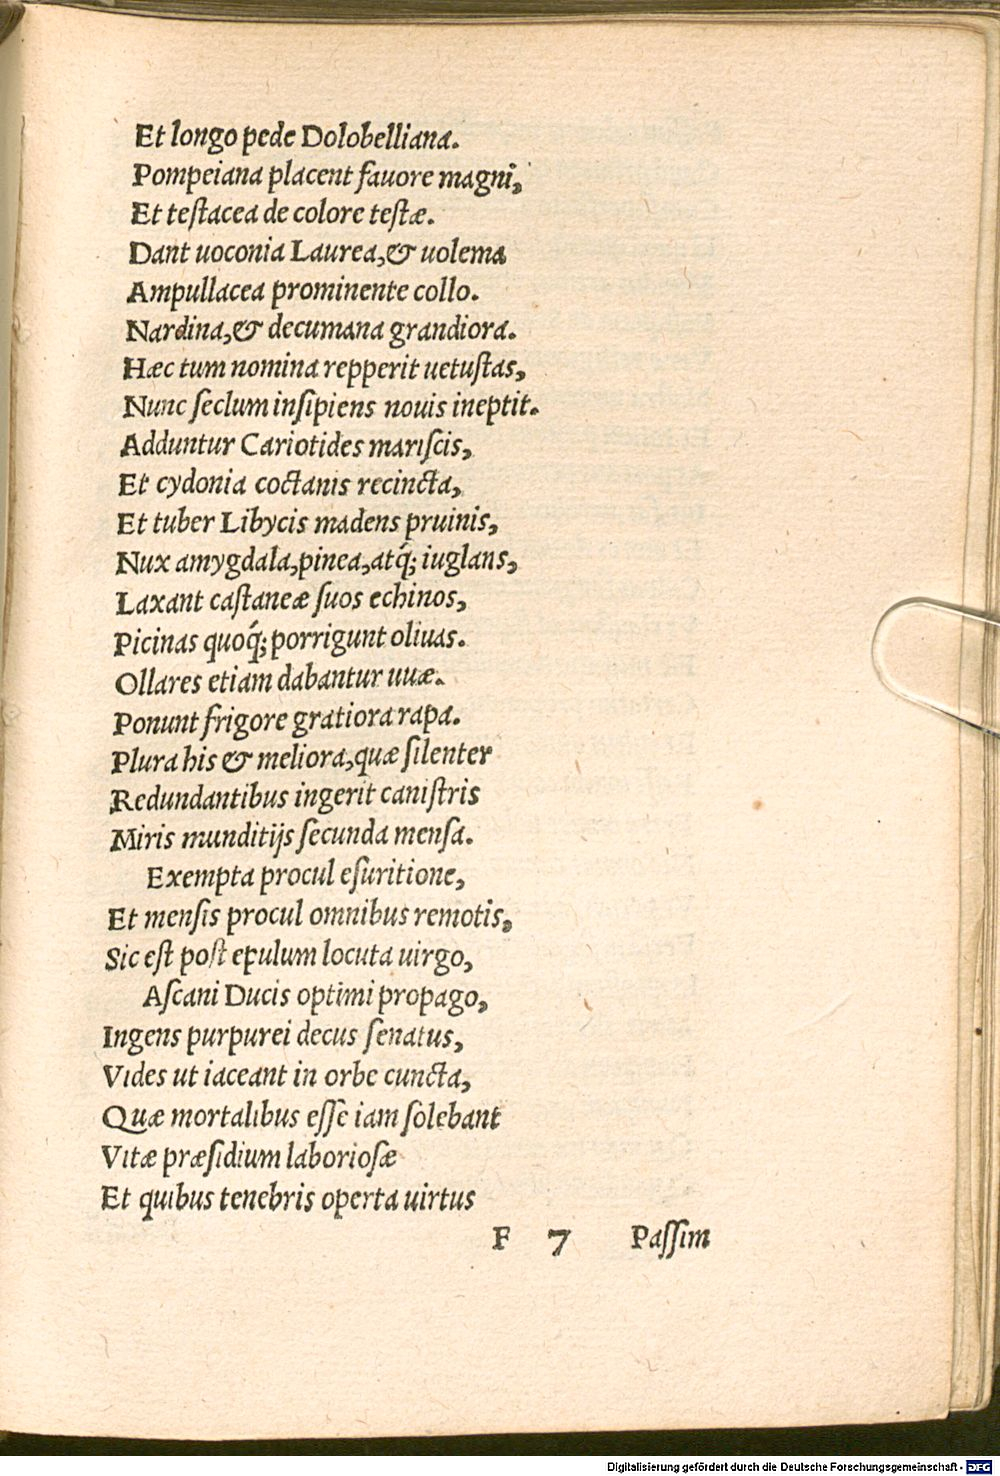 Et longo pede Dolobelliana.
Pompeiana placent fauore magni,
Et teſtacea de colore teſtæ.
Dant uoconia Laurea,& uolema
Ampullacea prominente collo.
Nardina,& decumana grandiora.
Hæc tum nomina repperit uetuſtas,
Nunc ſeclum inſipiens nouis ineptit.
Adduntur Cariotides mariſcis,
Et cydonia coctanis recincta,
Et tuber Libycis madens pruinis,
Nux amygdala,pinea,atq́; iuglans,
Laxant caſtaneæ ſuos echinos,
Picinas quoq́; porrigunt oliuas.
Ollares etiam dabantur uuæ.
Ponunt frigore gratiora rapa.
Plura his & meliora,quæ ſilenter
Redundantibus ingerit caniſtris
Miris munditijs ſecunda menſa.
Exempta procul eſuritione,
Et menſis procul omnibus remotis,
Sic eſt poſt epulum locuta uirgo,
Aſcani Ducis optimi propago,
Ingens purpurei decus ſenatus,
Vides ut iaceant in orbe cuncta,
Quæ mortalibus eſſe iam ſolebant
Vitæ præſidium laborioſæ
Et quibus tenebris operta uirtus
F 7 Paſſim
Digitalisierung gefördert durch die Deutsche Forschungsgemeinschaft - DFG